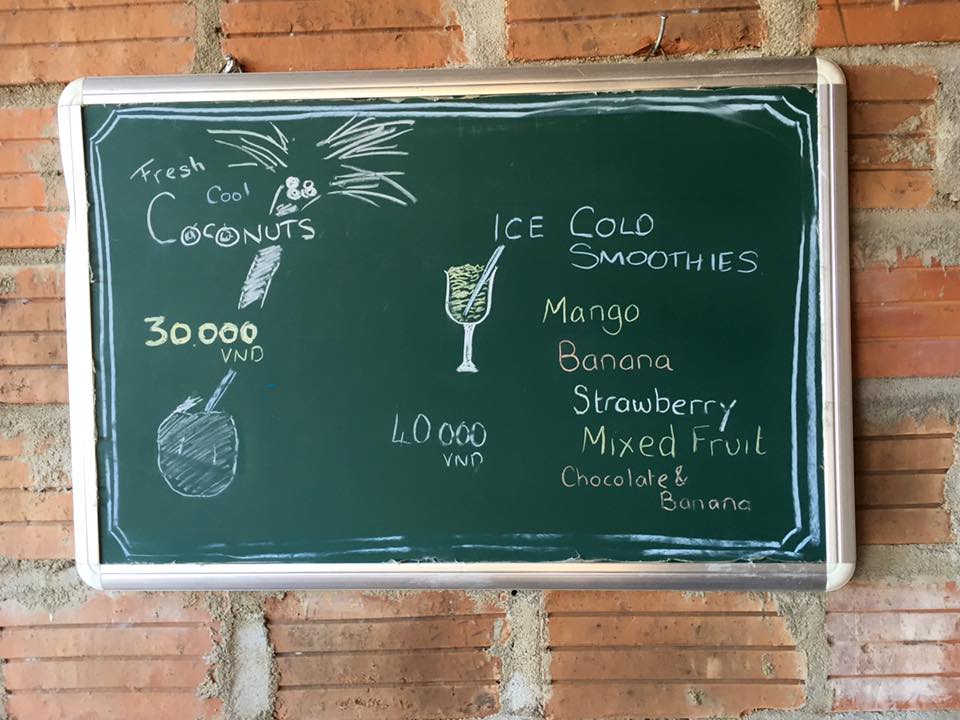 Fresh
Cool
COCONUTS
30.000
VND
ICE COLD
SMOOTHIES
Mango
Banana
Strawberry
Mixed Fruit
Chocolate &
Banana
40 000
VND